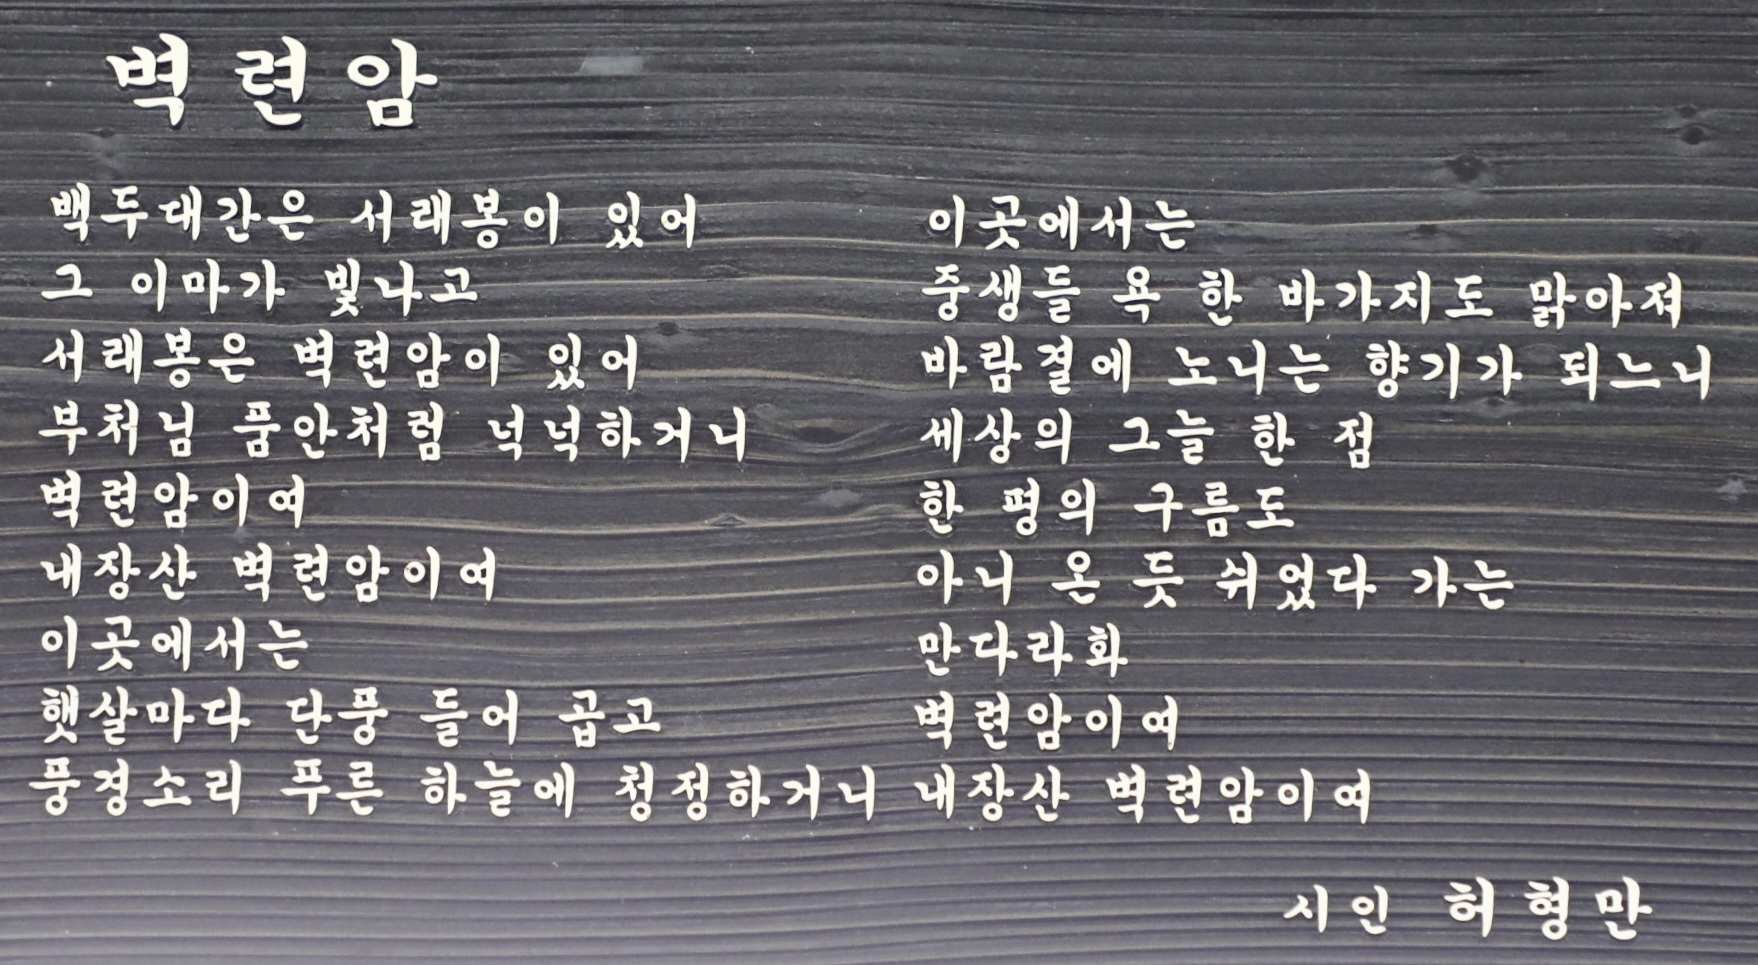 벽련암
백두대간은 서래봉이 있어
그 이마가 빛나고
서래봉은 벽련암이 있어
부처님 품안처럼 넉넉하거니
벽련암이여
내장산 벽련암이여
이곳에서는
햇살마다 단풍 들어 곱고
풍경소리 푸른 하늘에 청정하거니
이곳에서는
중생들 욕 한 바가지도 맑아져
바람결에 노니는 향기가 되느니
세상의 그늘 한 점
한 평의 구름도
아니 온 듯 쉬었다 가는
만다라화
벽련암이여
내장산 벽련암이여
시인 허형만